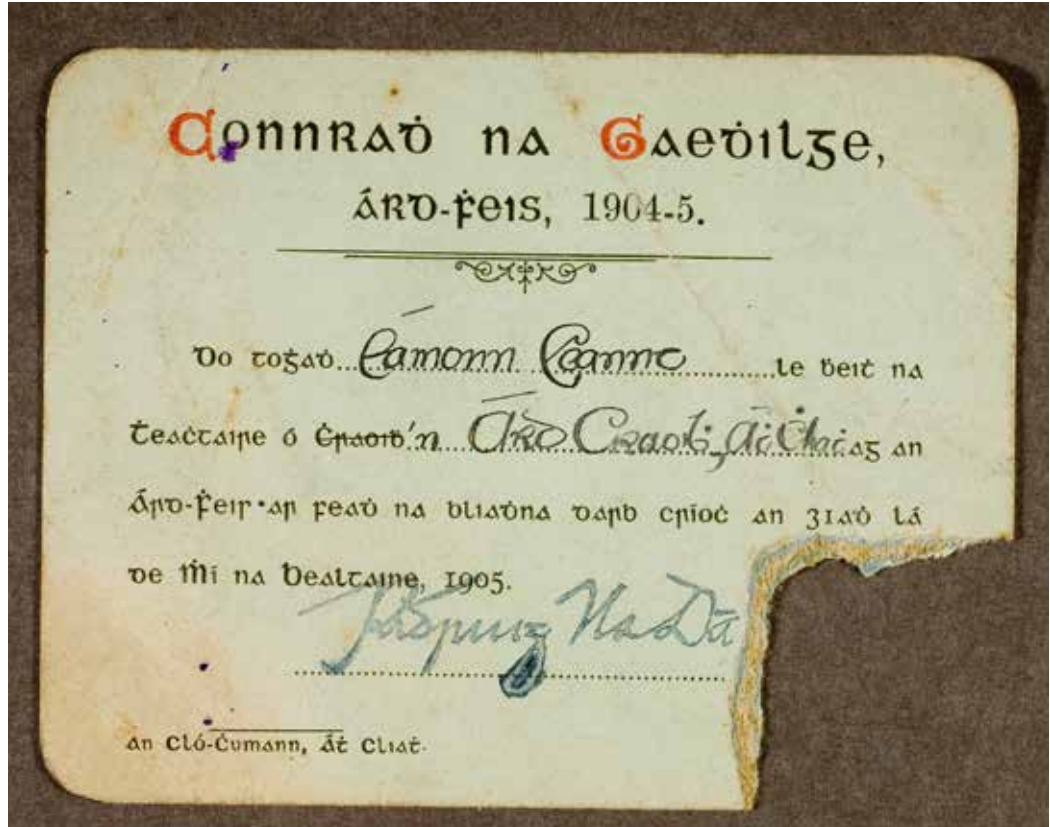 Connraḋ na Gaeḋilge,
Árd-ḟeis, 1904-5.
Do toġaḋ Éamonn Ceannt le ḃeiṫ na
ṫeaċtaire ó Ċraoiḃ'n Árd Craoḃ, Áṫ Cliaṫ ag an
Árd-Ḟeis ar feaḋ na bliaḋna darb críoċ an 31aḋ lá
de Ṁí na Bealtaine, 1905.
Pádruig
An Cló-Ċumann, Áṫ Cliaṫ.